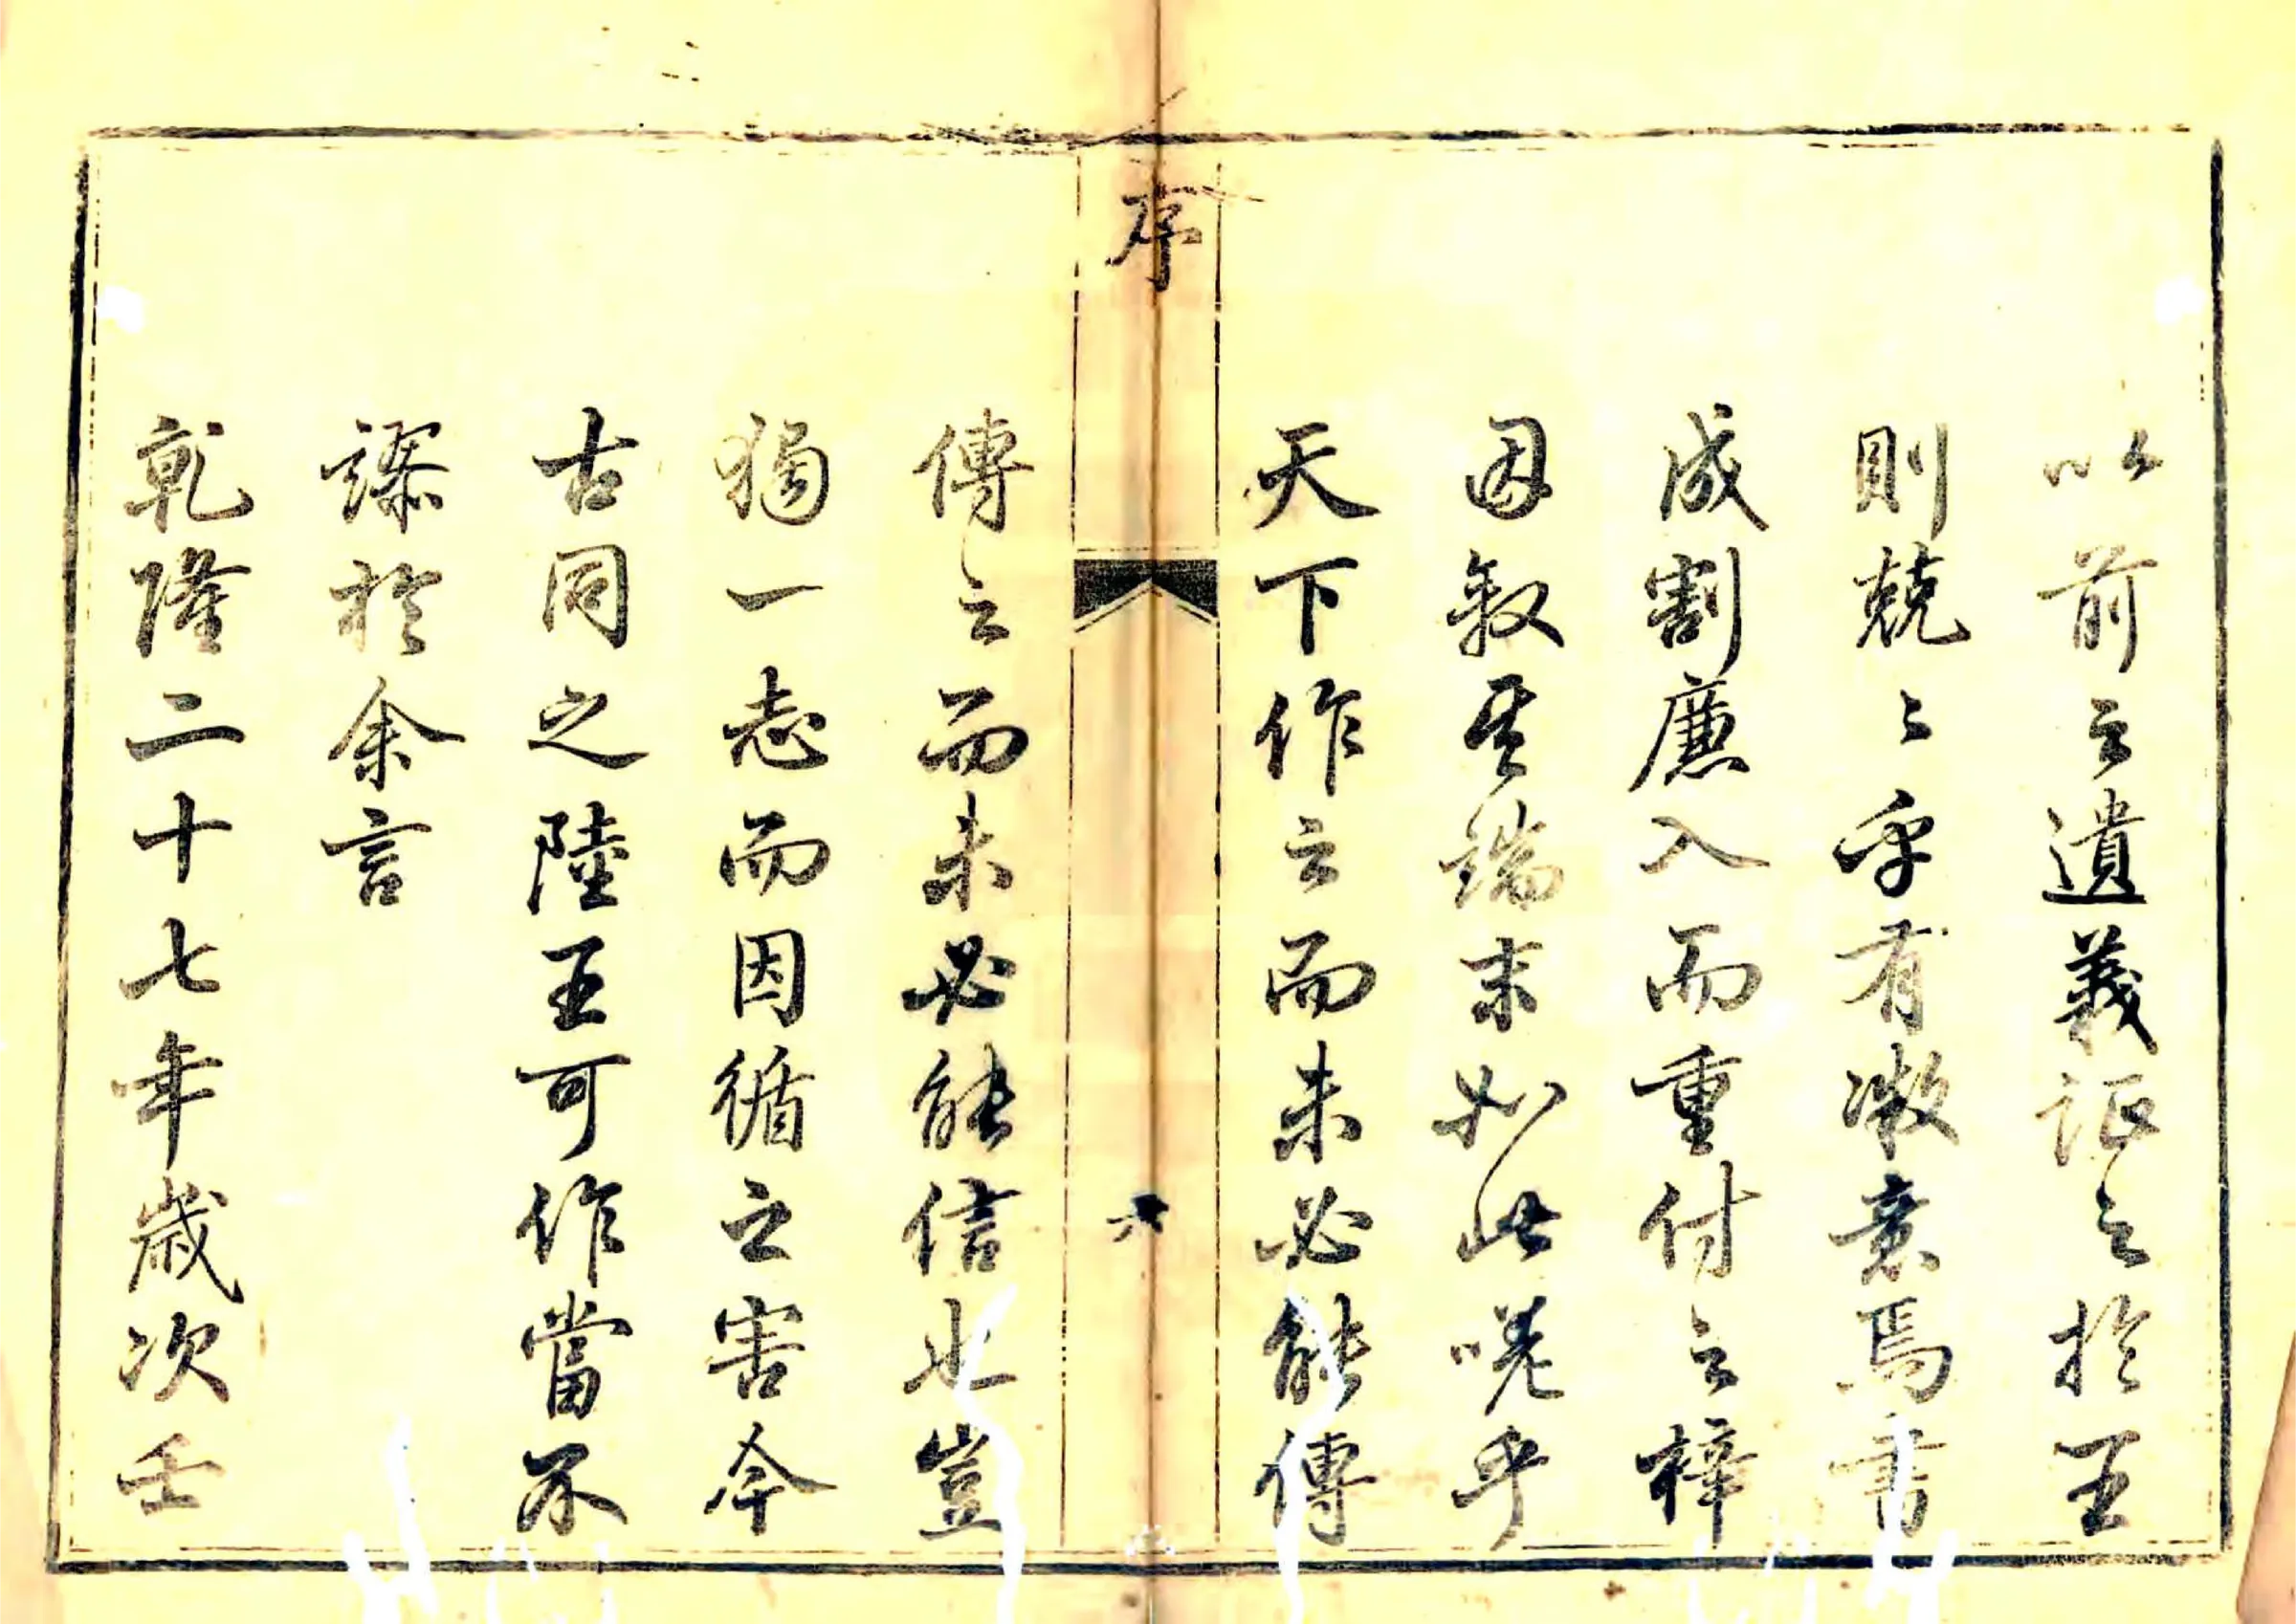 以前之遺義証之於王
則兢〻乎有微意焉書
成割廉入而重付之梓
因敘其端末如此嗟乎
天下作之而未必能傳
序
六
傳之而未必能信也豈
獨一志而因循之害今
古同之陸王可作當不
謬於余言
乾隆二十七年歲次壬